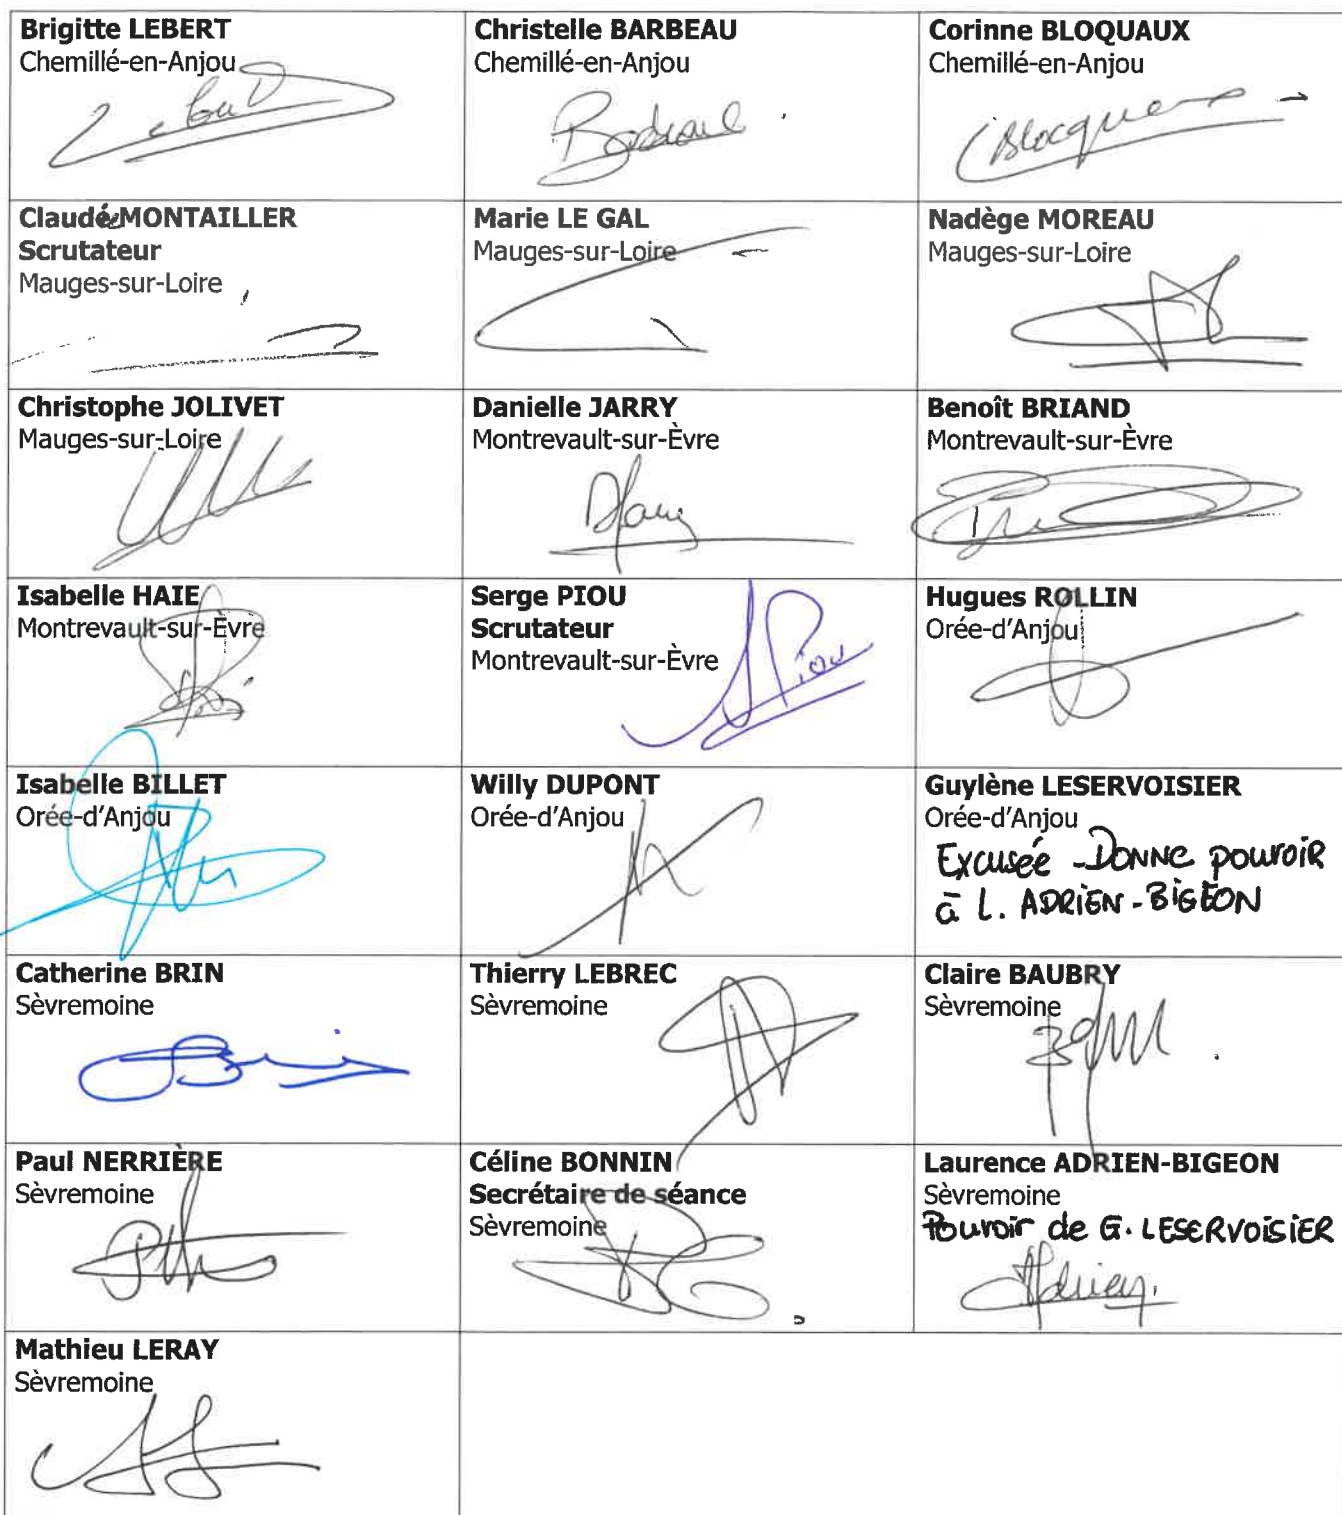 Brigitte LEBERT
Chemillé-en-Anjou
Lebert
Christelle BARBEAU
Chemillé-en-Anjou
Barbeau
Corinne BLOQUAUX
Chemillé-en-Anjou
Claude MONTAILLER
Scrutateur
Mauges-sur-Loire
Marie LE GAL
Mauges-sur-Loire
Nadège MOREAU
Mauges-sur-Loire
Christophe JOLIVET
Mauges-sur-Loire
Danielle JARRY
Montrevault-sur-Èvre
Benoît BRIAND
Montrevault-sur-Èvre
Isabelle HAIE
Montrevault-sur-Èvre
Serge PIOU
Scrutateur
Montrevault-sur-Èvre
S Piou
Hugues ROLLIN
Orée-d'Anjou
Isabelle BILLET
Orée-d'Anjou
Willy DUPONT
Orée-d'Anjou
Guylène LESERVOISIER
Orée-d'Anjou
Excusée - Donne pouvoir
à L. ADRIEN-BIGEON
Catherine BRIN
Sèvremoine
Thierry LEBREC
Sèvremoine
Claire BAUBRY
Sèvremoine
Paul NERRIÈRE
Sèvremoine
Céline BONNIN
Secrétaire de séance
Sèvremoine
Laurence ADRIEN-BIGEON
Sèvremoine
Pouvoir de G. LESERVOISIER
Adrien
Mathieu LERAY
Sèvremoine